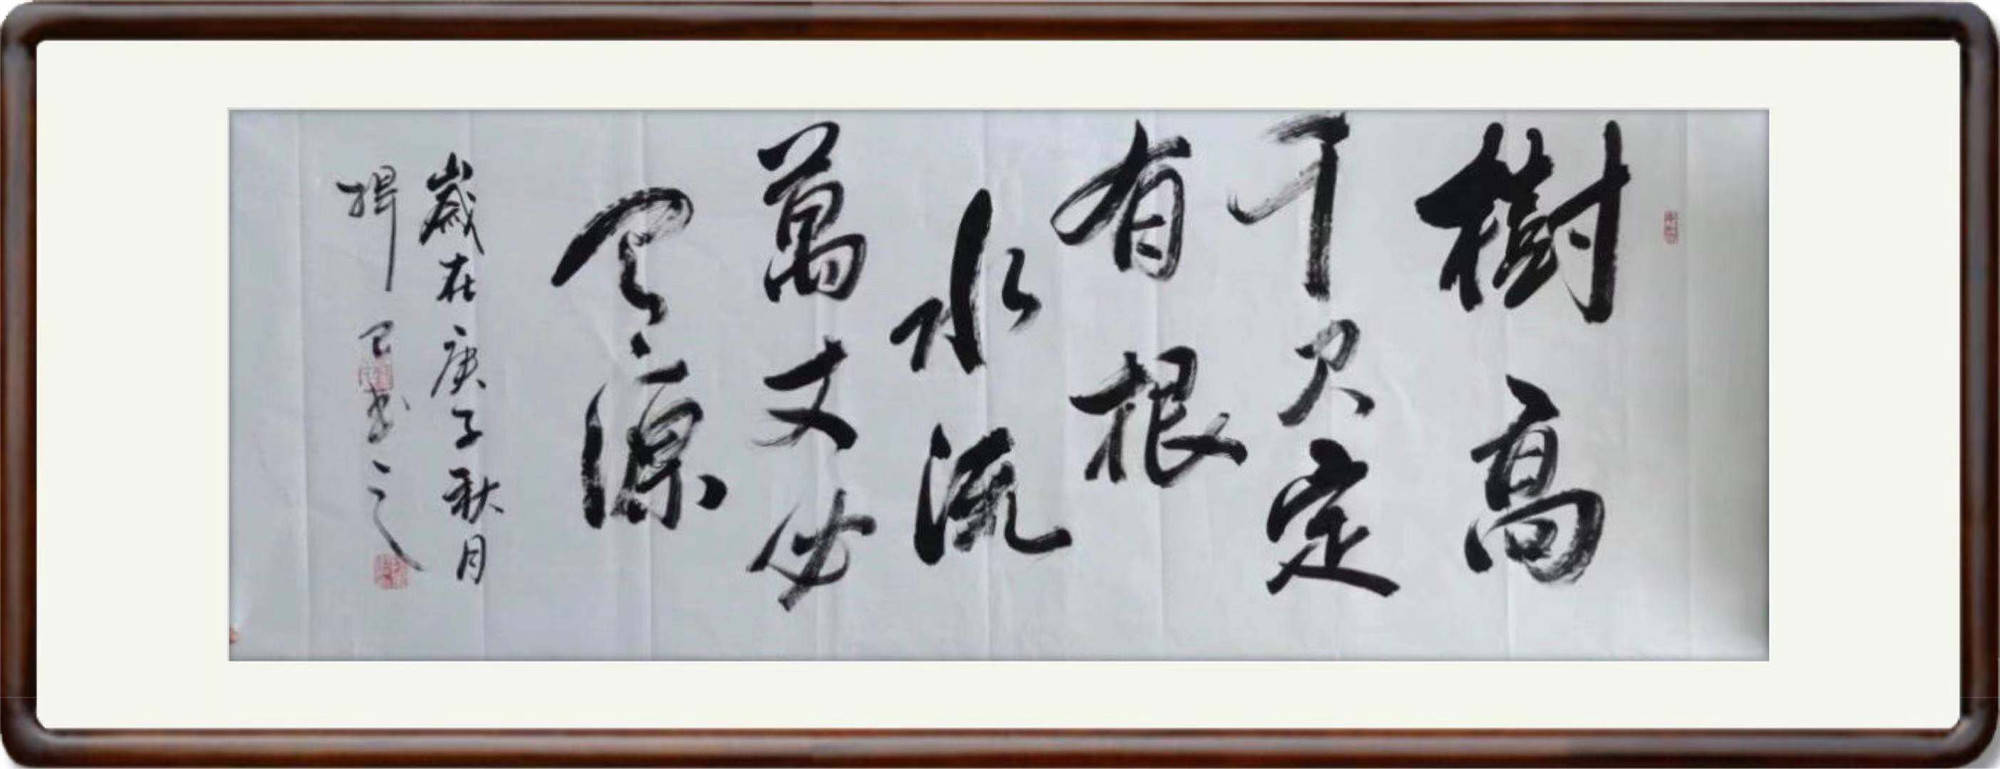 樹高
千尺定
有根
水流
萬丈必
有源
歲在庚子秋月
書之